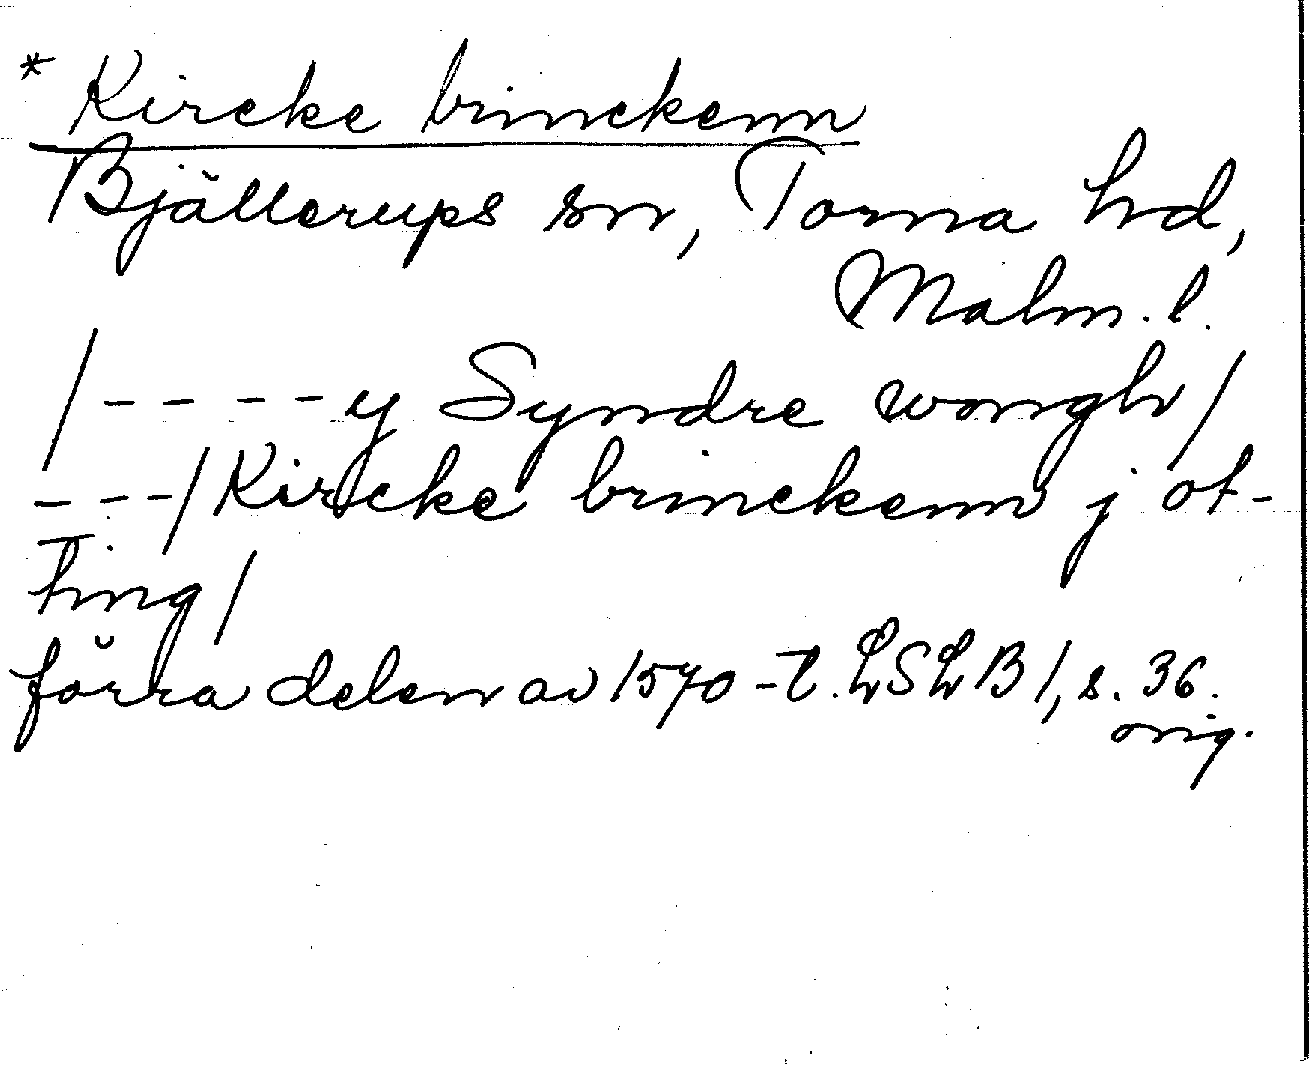 * Kircke brinckenn
Bjällerups sn, Torna hd,
Malm. l.
/ - - - - y Syndre wongh /
- - - / Kircke brinckenn j ot-
ting /
förra delen av 1570-t. LSLB 1, s. 36.
orig.